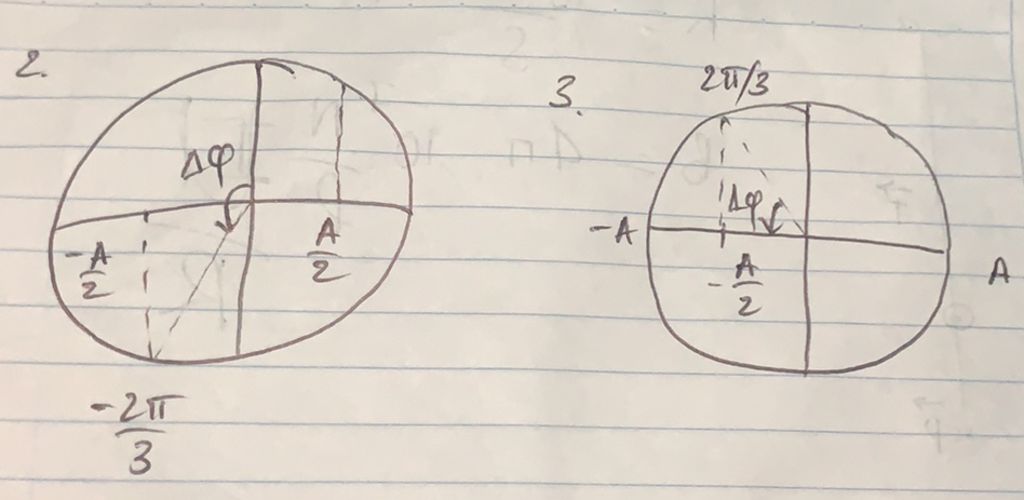 2.
Δφ
-A/2
A/2
-2π/3
3.
2π/3
-A
Δφ
-A/2
A